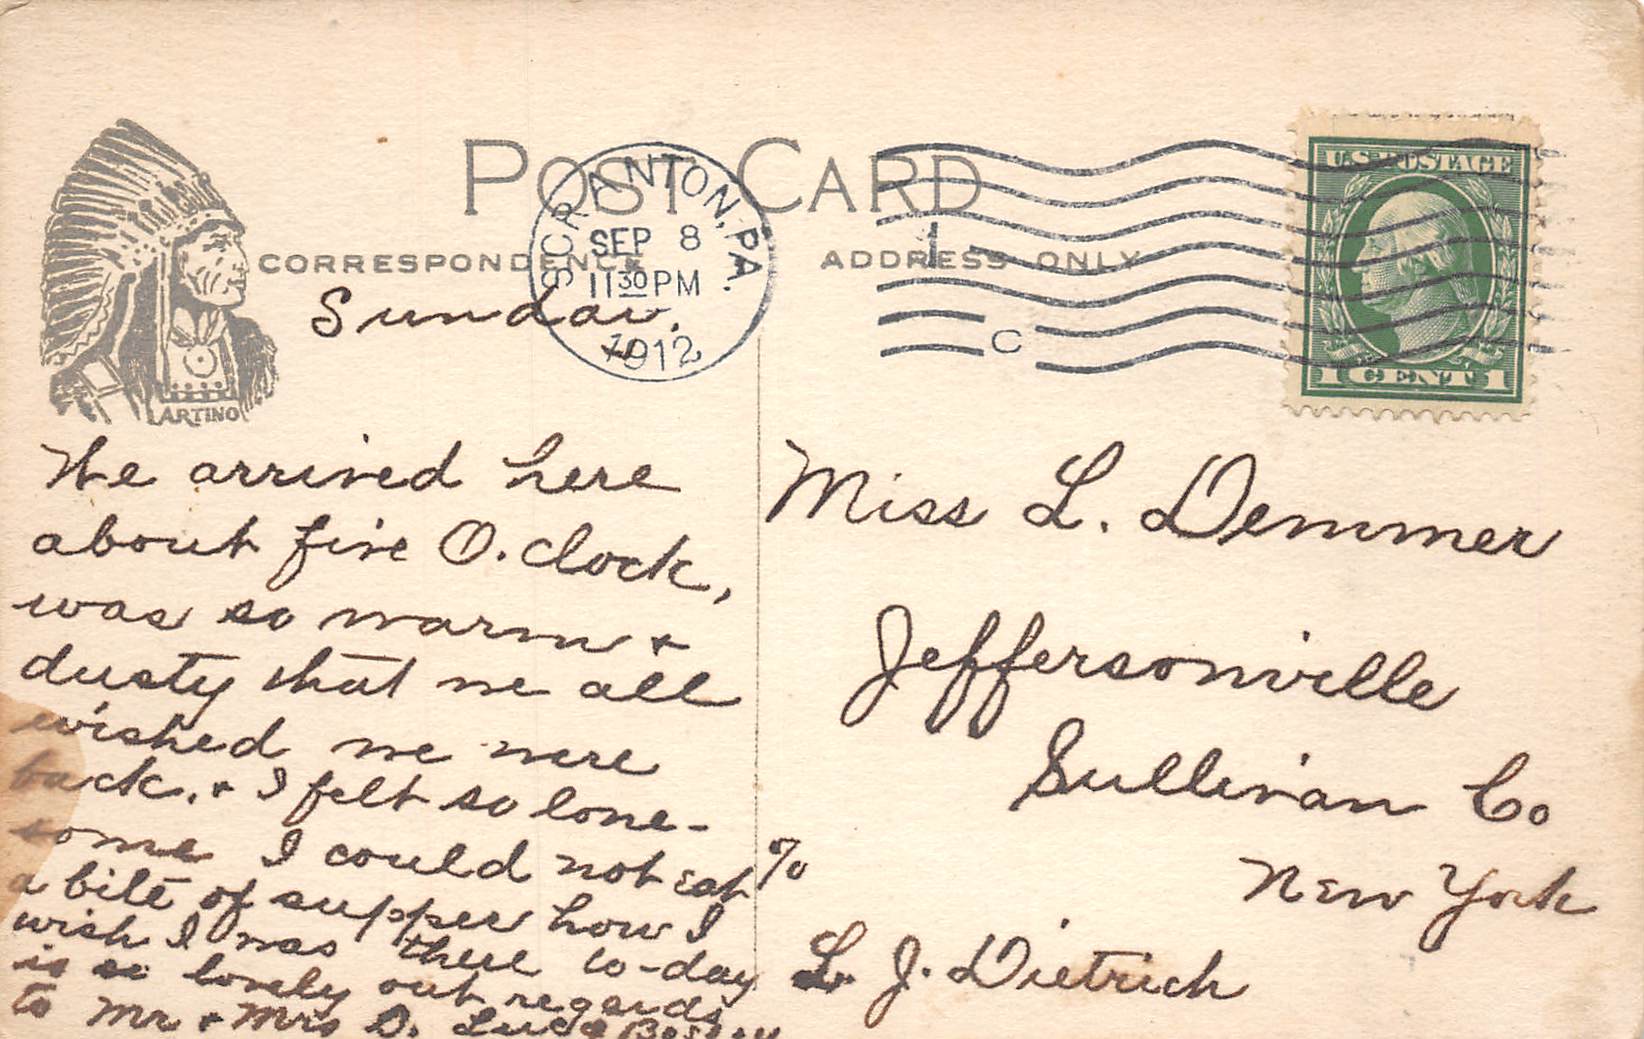 POST CARD
CORRESPONDENCE
ADDRESS ONLY
ARTINO
SCRANTON, PA.
SEP 8
11 30 PM
1912
1
C
U.S. POSTAGE
1 CENT 1
Sunday.
We arrived here
about five O. clock,
was so warm +
dusty that we all
wished we were
back. + I felt so lone-
some I could not eat
a bite of supper how I
wish I was there to-day
is so lovely out regards
to Mr + Mrs D.
Miss L. Demmer
Jeffersonville
Sullivan Co
New York
%
L. J. Dietrich